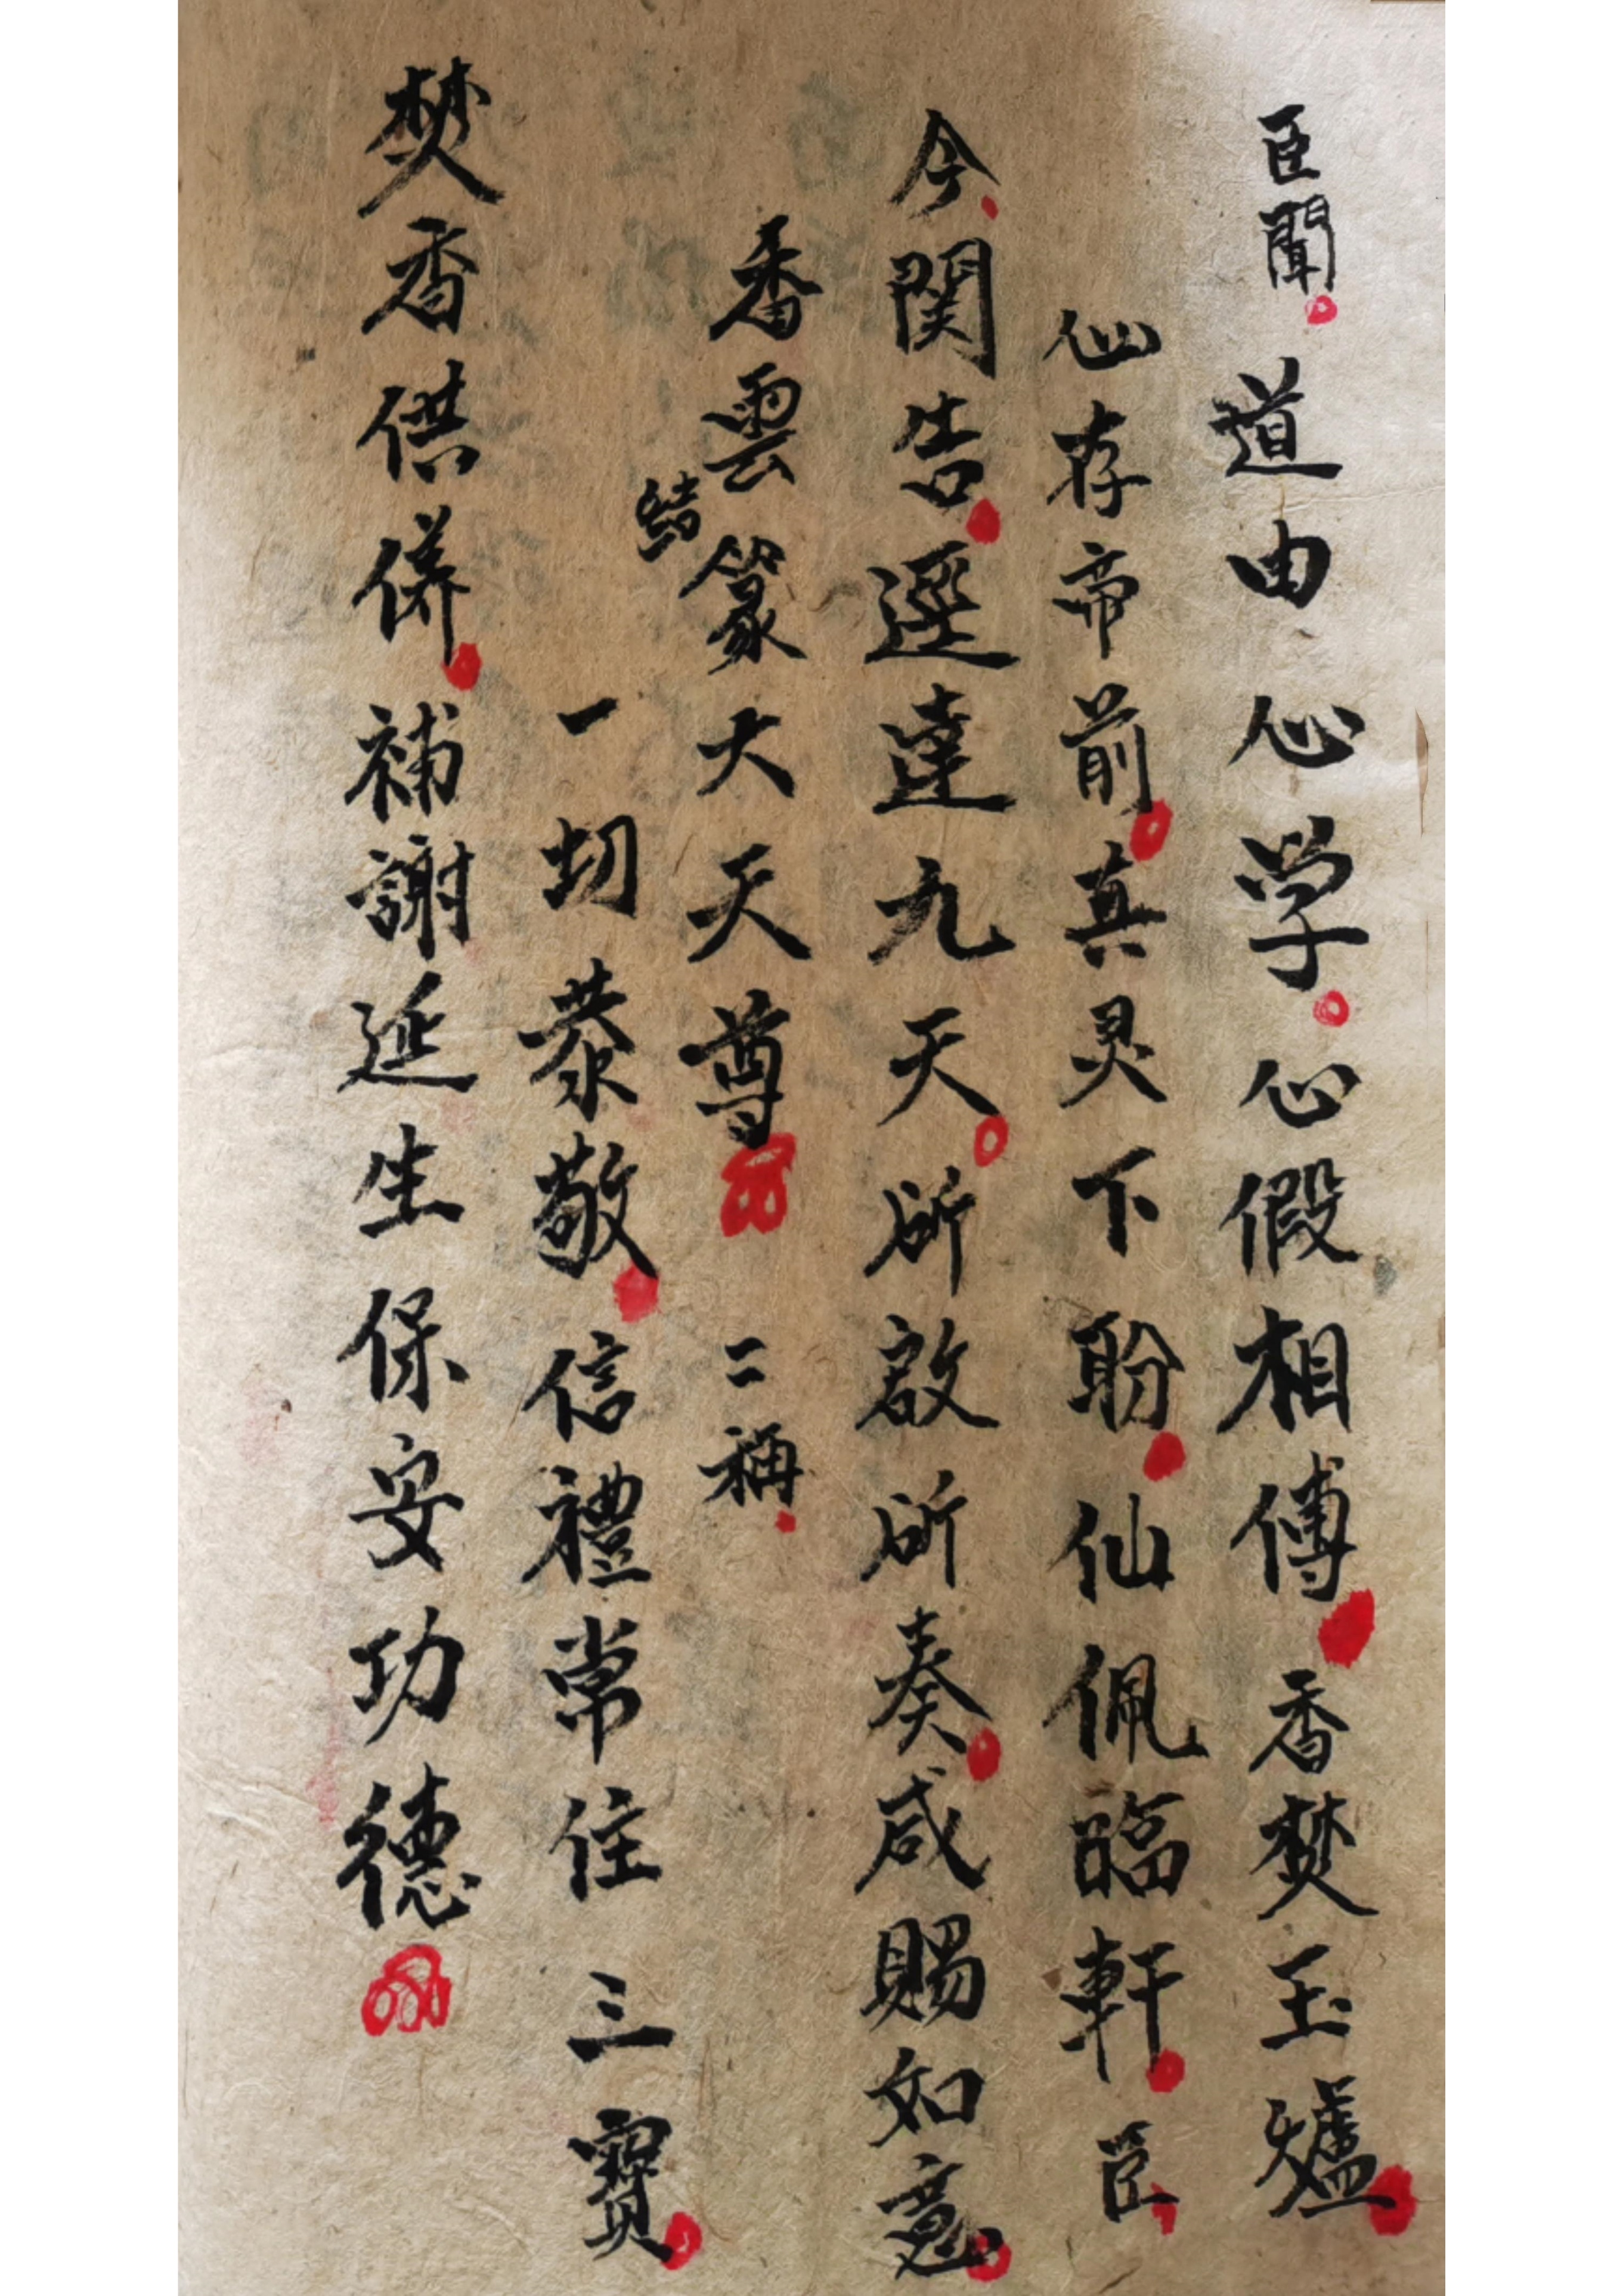 臣聞道由心学心假相傳香焚玉爐
心存帝前真灵下盼仙佩臨軒臣
今関告逕達九天所啟所奏咸賜如意
香雲篆大天尊二稱
結
一切恭敬信禮常住三寳
焚香供養補謝延生保安功德